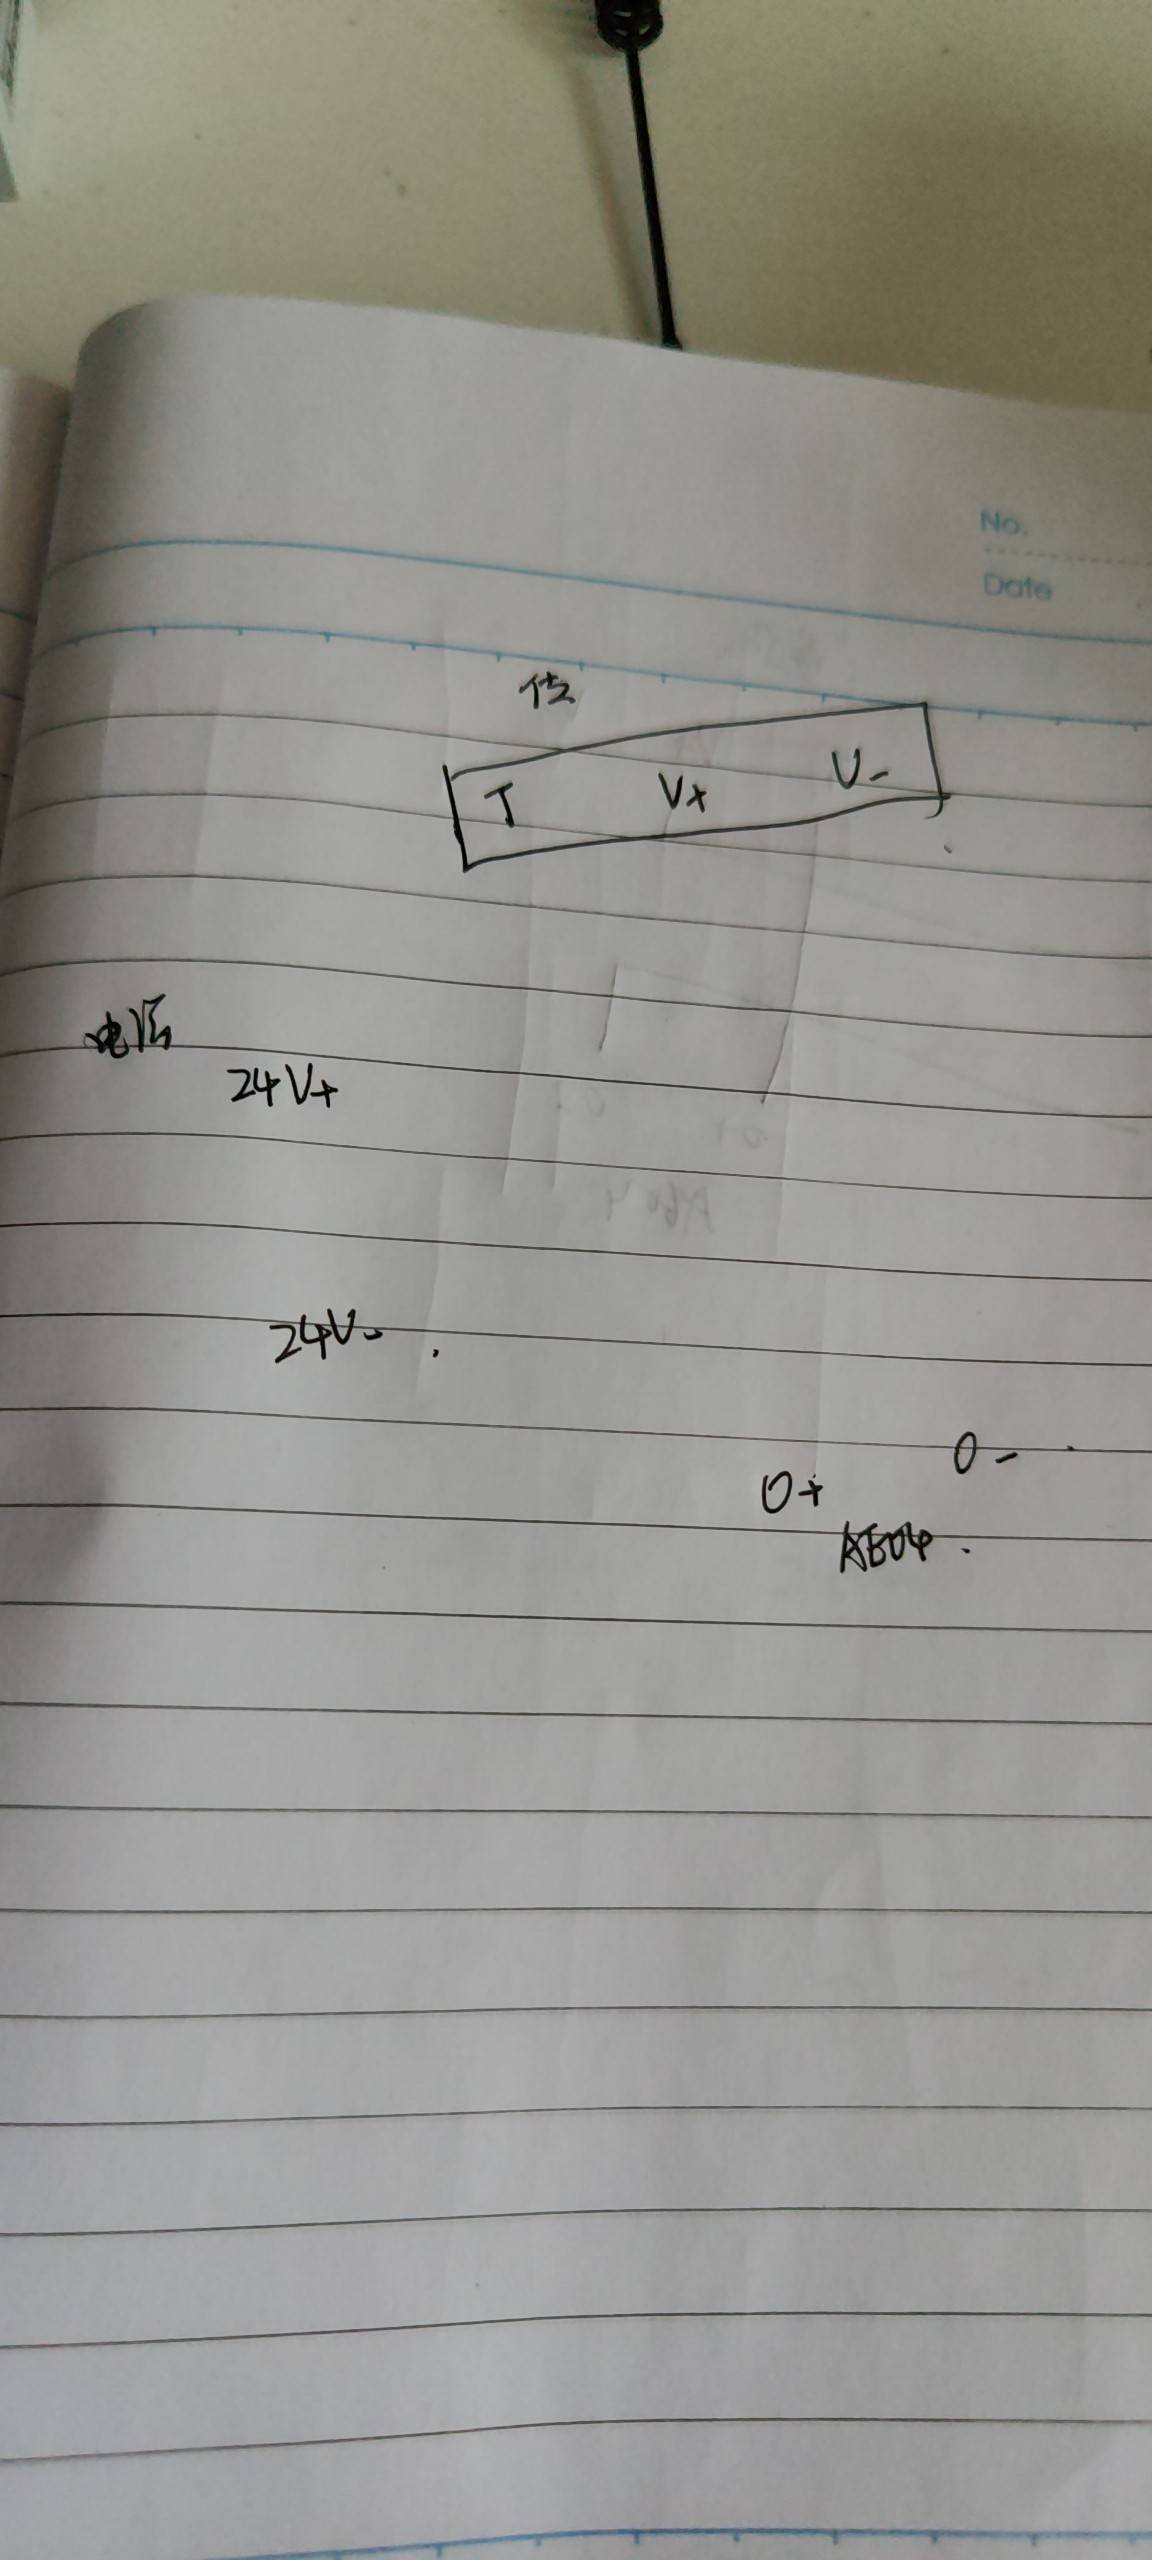 No.
Date
传
T V+ V-
电源
24V+
24V-
0-
0+
AE04